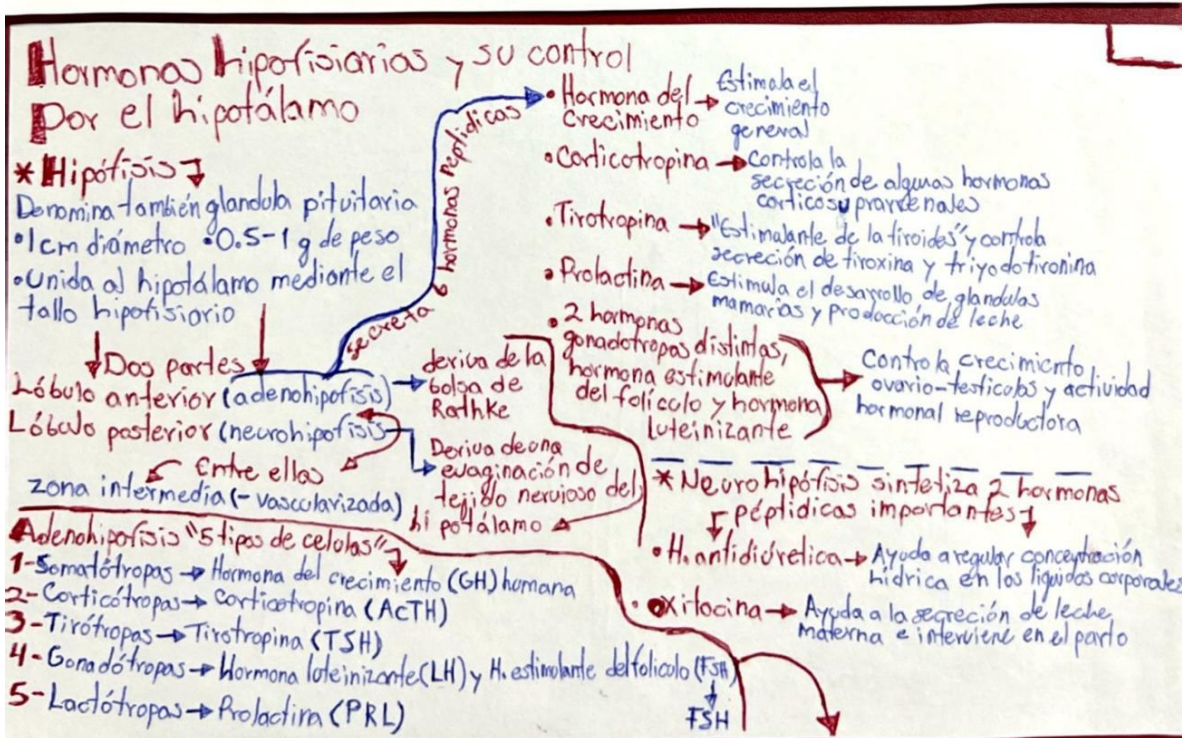 Hormonas hipofisiarias y su control
Por el hipotálamo
* Hipófisis
Denomina también glandula pituitaria
•1cm diámetro •0.5-1 g de peso
•Unida al hipotálamo mediante el
tallo hipofisiorio
Dos partes
Lóbulo anterior (adenohipofisis)
deriva de la
bolsa de
Rathke
Lóbulo posterior (neurohipofisis
Deriva de una
evaginación de
tejido nervioso del
hipotálamo
Entre ellas
zona intermedia (- vascularizada)
secreta 6 hormonas peptidicas
• Hormona del
crecimiento
Estimula el
crecimiento
general
• Corticotropina
Controla la
secreción de algunas hormonas
corticosuprarrenales
• Tirotropina
"Estimalante de la tiroides" y controla
secreción de tiroxina y triyodotironina
• Prolactina
Estimula el desarrollo de glandulas
mamarias y producción de leche
• 2 hormonas
gonadotropas distintas,
hormona estimulante
del folículo y hormona
luteinizante
Controla crecimiento
ovario-testiculos y actividad
hormonal reproductora
* Neurohipófisis sintetiza 2 hormonas
péptidicas importantes
• H. antidiúretica
Ayuda a regular concentración
hídrica en los liquidos corporales
• Oxitocina
Ayuda a la secreción de leche
materna e interviene en el parto
Adenohipofisis "5 tipos de celulas"
1-Somatótropas → Hormona del crecimiento (GH) humana
2-Corticótropas → Corticotropina (ACTH)
3-Tirótropas → Tirotropina (TSH)
4-Gonadótropas → Hormona luteinizante (LH) y H. estimulante del folículo (FSH)
FSH
5-Lactótropas → Prolactina (PRL)